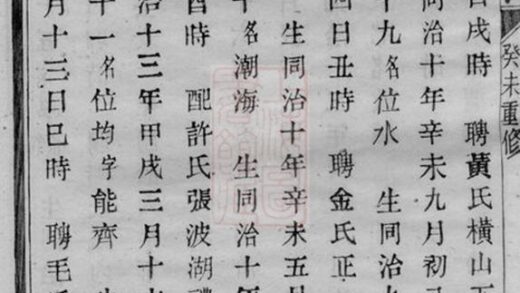 癸未重修
戌時 聘黃氏橫山
同治十年辛未九月初
十九名位水 生同治九
四日丑時 聘金氏正
生同治十年辛未五月
十名潮海 生同治十年
酉時 配許氏張波湖
治十三年甲戌三月十
十一名位均字能齊 生
月十三日巳時 聘毛